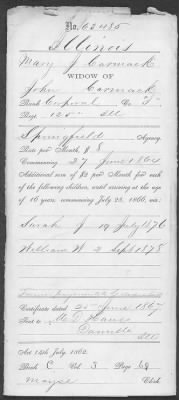 No. 62485
Illinois
Mary J Cormack
WIDOW OF
John Cormack
Rank Corporal Co. F
Regt. 125" Ill
Springfield Agency.
Rate per Month, $ 8
Commencing 27 June 1864
Additional sum of $2 per Month for each
of the following children, until arriving at the age
of 16 years, commencing July 25, 1866, viz:
Sarah J 19 July 1876
William W 2 Sept 1878
Certificate dated 25 June 1867
Sent to
Danville
Ills
Act 14th July, 1862.
Book C Vol. 3 Page 69
Clerk